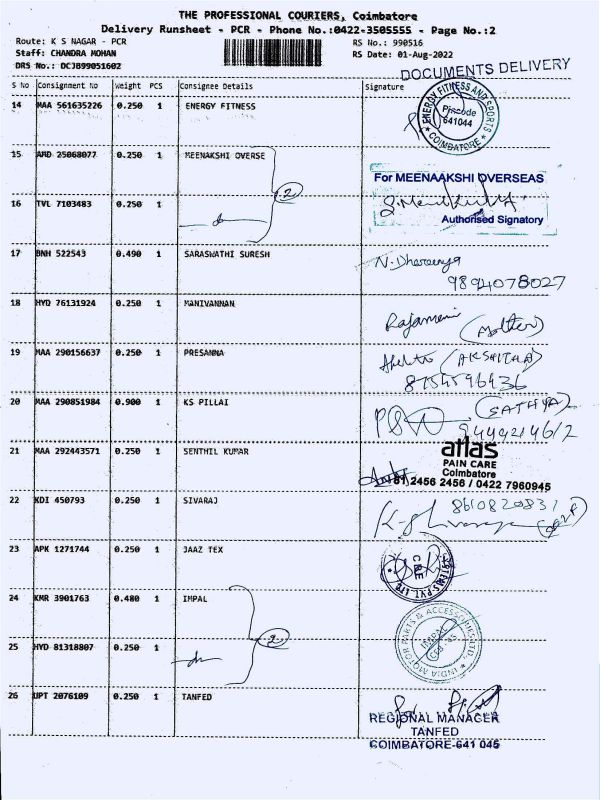 THE PROFESSIONAL COURIERS, Coimbatore
Delivery Runsheet - PCR - Phone No.:0422-3505555 - Page No.:2
Route: K S NAGAR - PCR RS No.: 990516
Staff: CHANDRA MOHAN RS Date: 01-Aug-2022
DRS No.: DCJB99051602
DOCUMENTS DELIVERY
S No Consignment No Weight PCS Consignee Details Signature
14 MAA 561635226 0.250 1 ENERGY FITNESS
ENERGY FITNESS AND SPORTS
Pincode
641044
* COIMBATORE *
15 AMD 25068077 0.250 1 MEENAKSHI OVERSE
2
For MEENAAKSHI OVERSEAS
16 TVL 7103483 0.250 1
Authorised Signatory
17 BNH 522543 0.490 1 SARASWATHI SURESH
9894078027
18 HYD 76131924 0.250 1 MANIVANNAN
Rajamani (Mother)
19 MAA 290156637 0.250 1 PRESANNA
(AKSHITHA)
8754596436
20 MAA 290851984 0.900 1 KS PILLAI
(SATHYA)
9444214612
21 MAA 292443571 0.250 1 SENTHIL KUMAR
atlas
PAIN CARE
Coimbatore
2456 2456 / 0422 7960945
22 KDI 450793 0.250 1 SIVARAJ
8610820831
23 APK 1271744 0.250 1 JAAZ TEX
CBE
24 KMR 3901763 0.480 1 IMPAL
2
INDIA MOTOR PARTS & ACCESSORIES LTD.
IMPAL
25 HYD 81318807 0.250 1
26 UPT 2076109 0.250 1 TANFED
REGIONAL MANAGER
TANFED
COIMBATORE-641 045